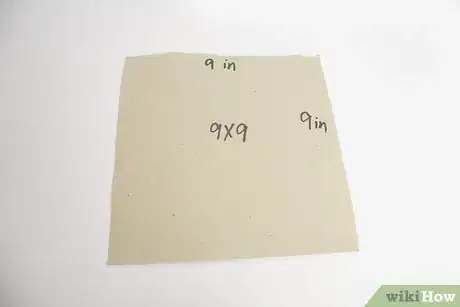 9 in
9in
9X9
wikiHow